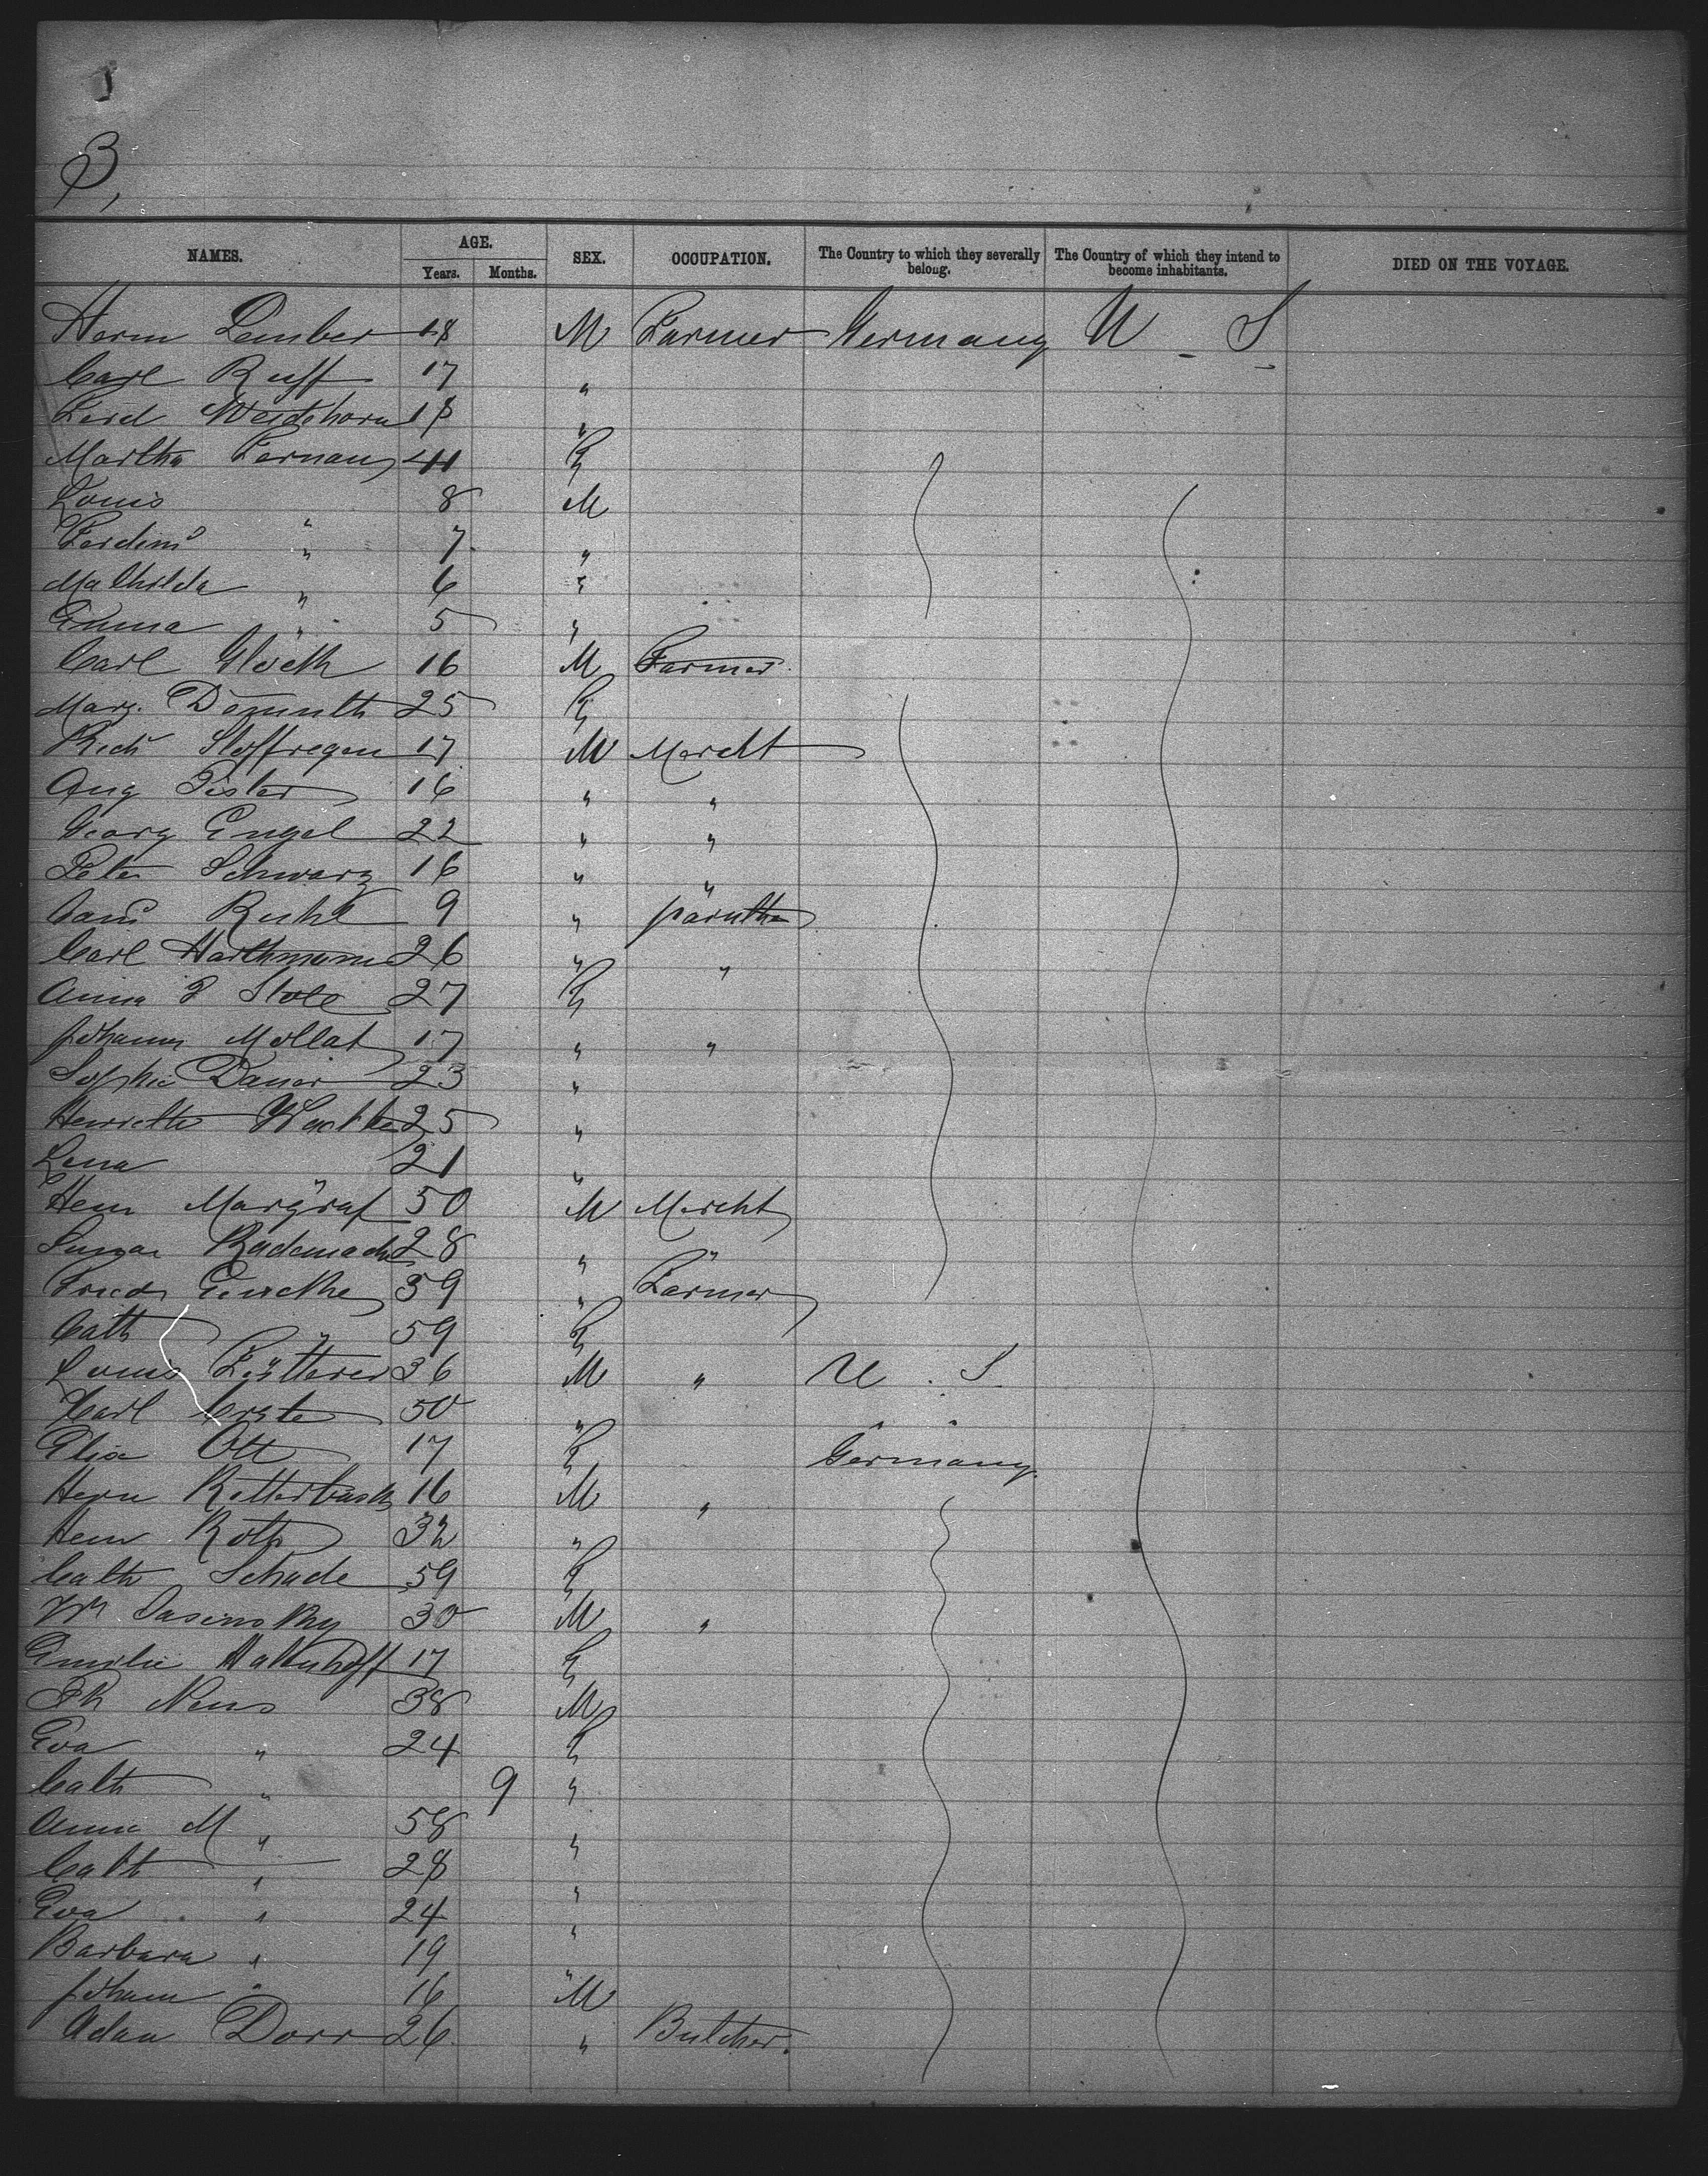 3,
NAMES. AGE. SEX. OCCUPATION. The Country to which they severally belong. The Country of which they intend to become inhabitants. DIED ON THE VOYAGE.
Years. Months.
Herm Lember 18 M Farmer Germany U - S
Carl Ruff 17 "
Ferd Weidehorn 18 "
Martha Fernau 41 F
Louis " 8 M
Ferdind " 7 "
Mathilda " 6 "
Emma " 5 "
Carl Gloeth 16 M Farmer
Marg. Demuth 25 F
Richd Stoffregen 17 M Morcht
Aug Pister 16 " "
Georg Engel 22 " "
Peter Schwarz 16 " "
Ruhl 9 "
Carl Harthmann 26 " "
Anna Stolz 27 F
Johann Mollat 17 " "
Sophie Dauer 23 "
Henriette 25 "
Lena " 21 "
Hein Margraf 50 M Morcht
Rademach 28 " "
Fried Guncke 59 " Farmer
Cath " 59 F
Louis Futterer 36 M " U. S.
Carl Crste 50 " " "
Elise Ott 17 F Germany
Hern Rotterbusch 16 M "
Hein Roth 32 "
Cath Schade 59 F
Wm Jasinsky 30 M "
Emilie Hattenhoff 17 F
Neus 38 M
Eva " 24 F
Cath " 9 "
Anna M " 58 "
Cath " 28 "
Eva " 24 "
Barbara " 19 "
Johann " 16 M
Adam Dorr 26 " Butcher.